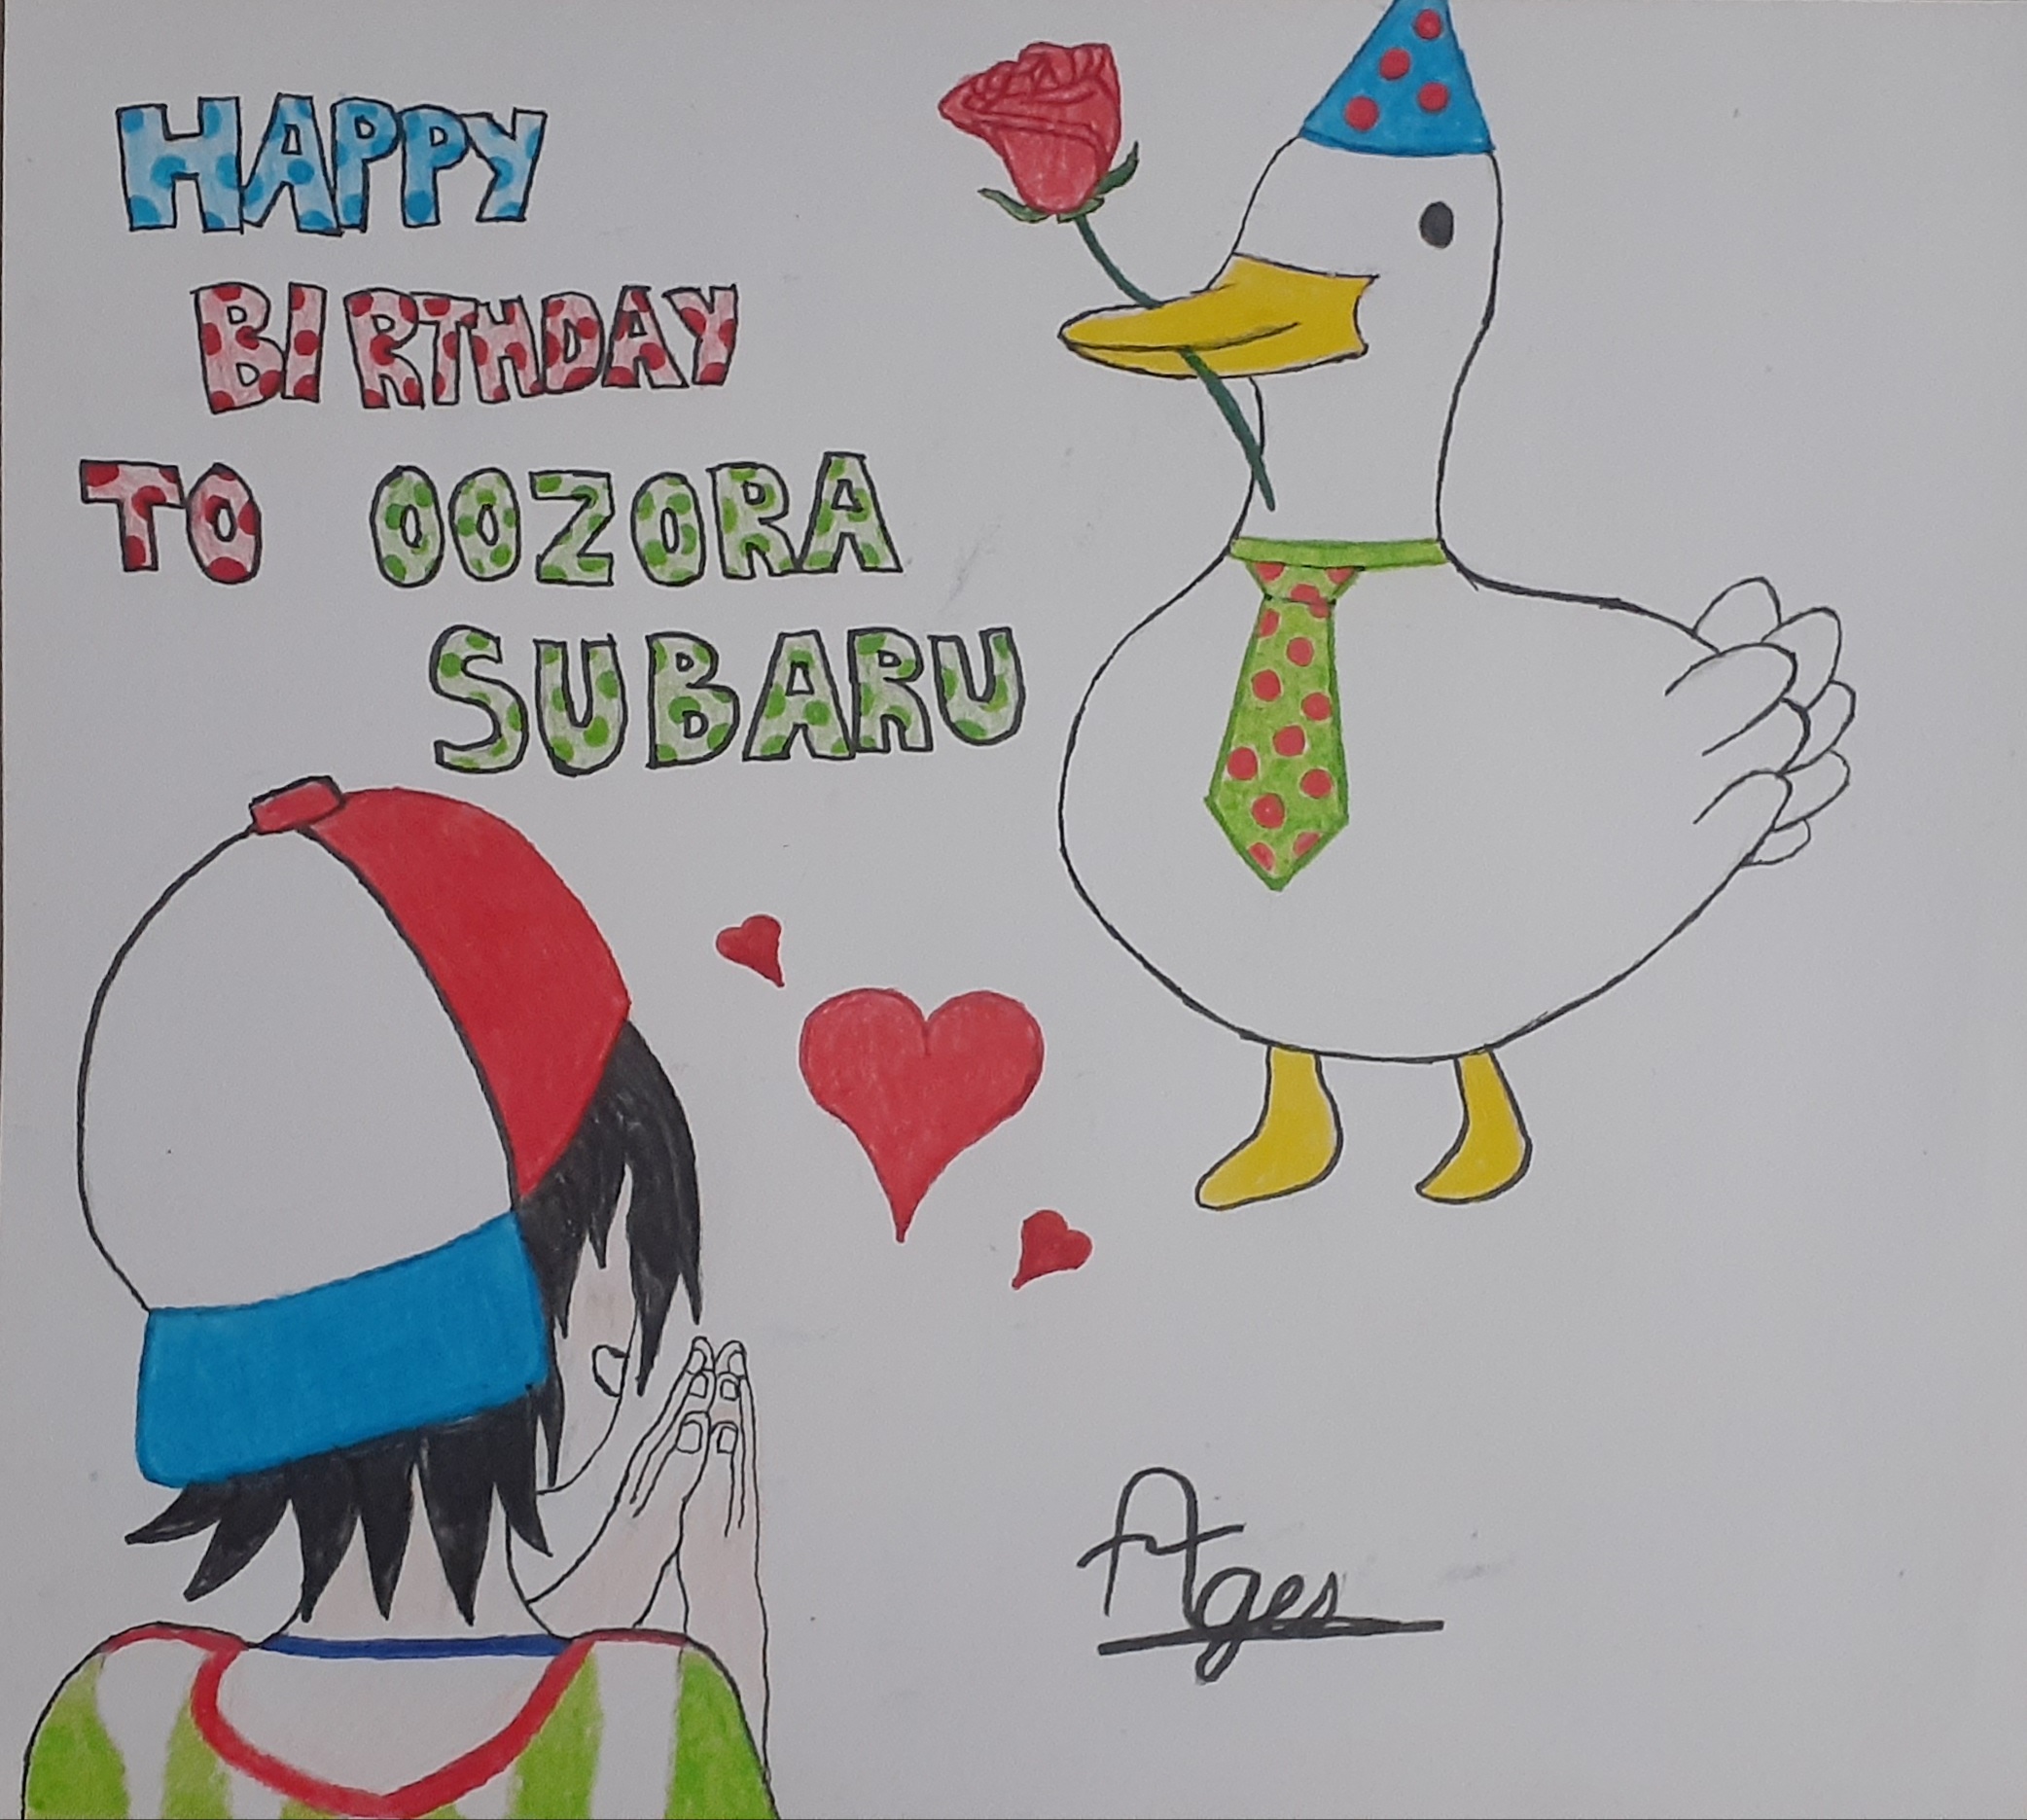 HAPPY
BIRTHDAY
TO OOZORA
SUBARU
Ages